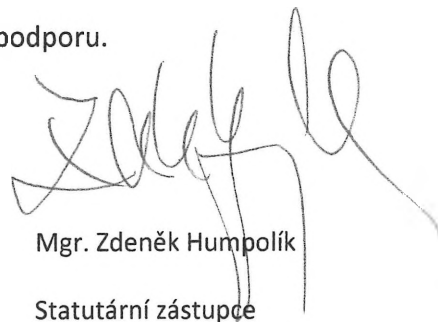 podporu.
Mgr. Zdeněk Humpolík
Statutární zástupce